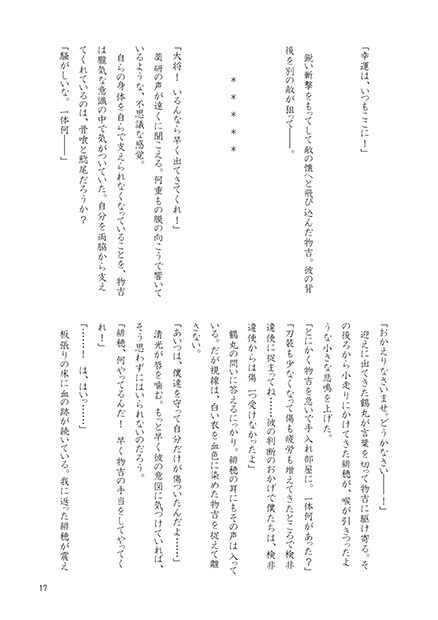 「幸運は、いつもここに！」
鋭い斬撃をもってして敵の懐へと飛び込んだ物吉。彼の背
後を別の敵が狙って――。
＊＊＊＊＊
「大将！　いるんなら早く出てきてくれ！」
薬研の声が遠くに聞こえる。何重もの膜の向こうで響いて
いるような、不思議な感覚。
自らの身体を自らで支えられなくなっていることを、物吉
は朧気な意識の中で気がついていた。自分を両脇から支え
てくれているのは、骨喰と鯰尾だろうか？
「騒がしいな。一体何――」
「おかえりなさいませ。どうかなさい――！」
迎えに出てきた鶴丸が言葉を切って物吉に駆け寄る。そ
の後ろから小走りにかけてきた緋穂が、喉が引きつったよ
うな小さな悲鳴を上げた。
「とにかく物吉を急いで手入れ部屋に。一体何があった？」
「刀装も少なくなって傷も疲労も増えてきたところで検非
違使に捕まってね……彼の判断のおかげで僕たちは、検非
違使からは傷一つ受けなかったよ」
鶴丸の問いに答えるにっかり。緋穂の耳にもその声は入って
いる。だが視線は、白い衣を血色に染めた物吉を捉えて離
さない。
「あいつは、僕達を守って自分だけが傷ついたんだよ……」
清光が唇を噛む。もっと早く彼の意図に気づけていれば、
そう思わずにはいられないのだろう。
「緋穂、何やってるんだ！　早く物吉の手当をしてやってく
れ！」
「……！　は、はい……」
板張りの床に血の跡が続いている。我に返った緋穂が震え
17